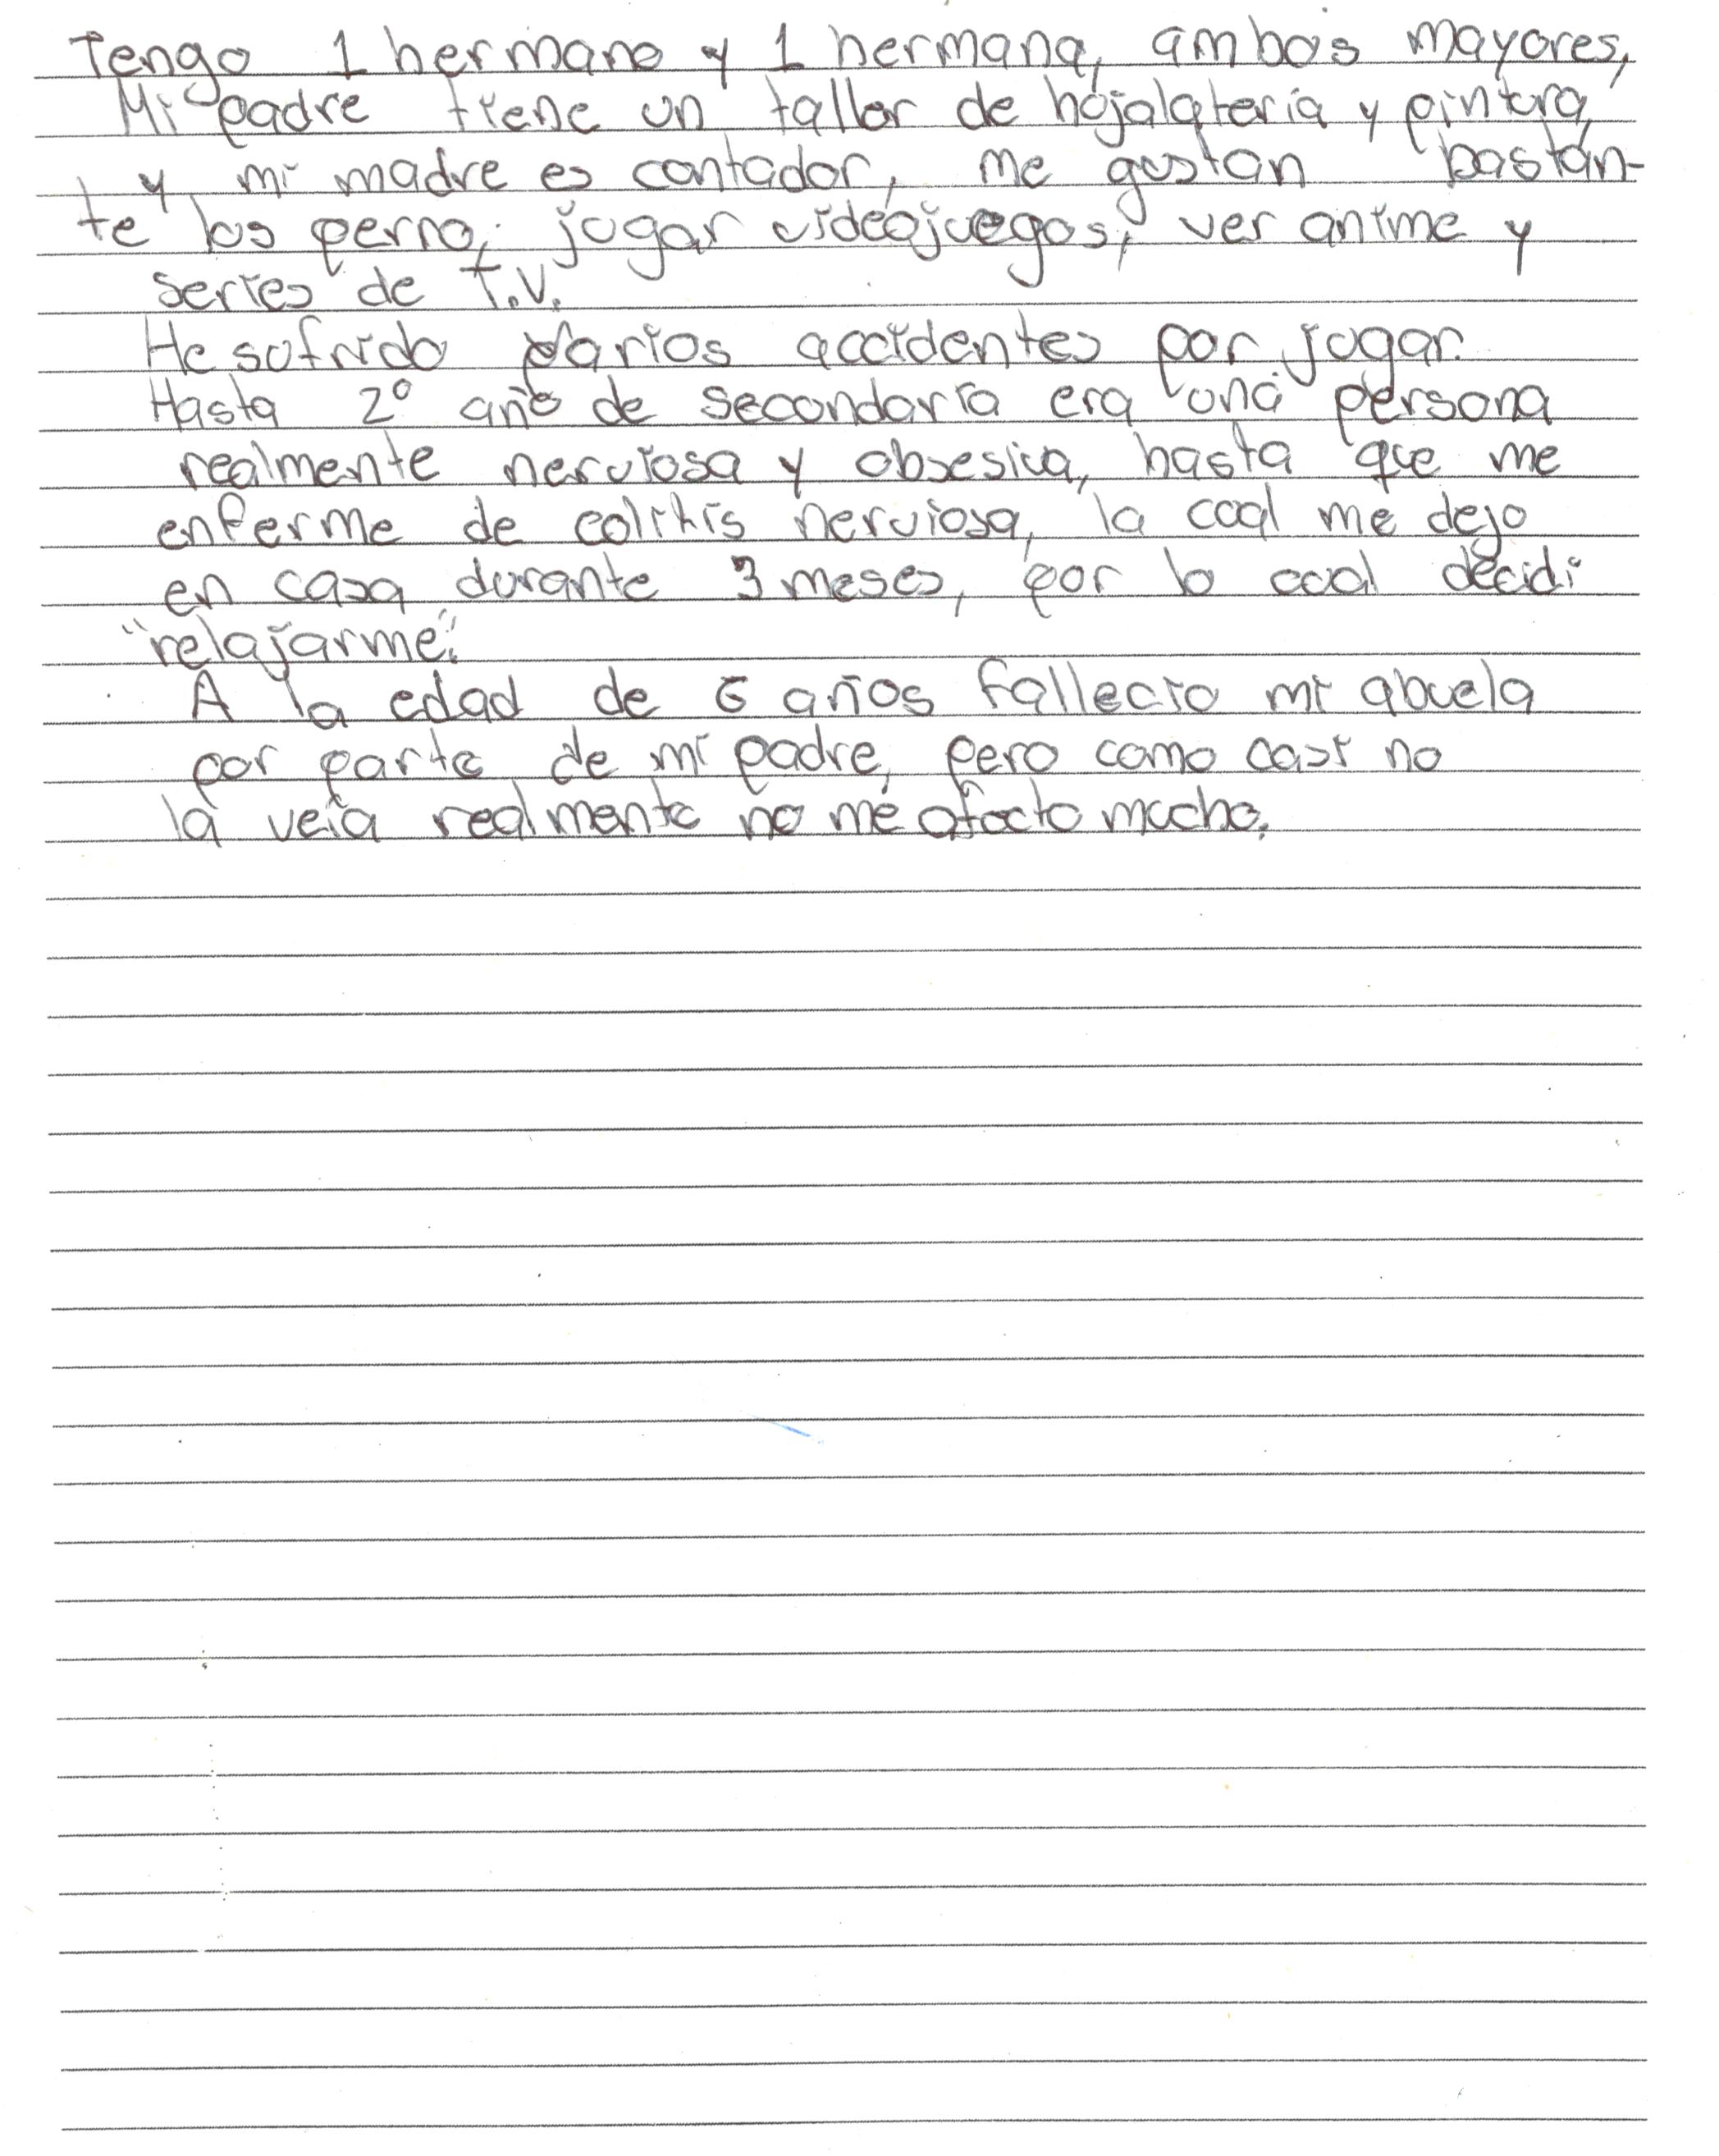 Tengo 1 hermano y 1 hermana, ambos mayores,
Mi padre tiene un taller de hojalateria y pintura
y mi madre es contador, me gustan bastan-
te los perro, jugar videojuegos, ver anime y
series de T.V.
He sufrido varios accidentes por jugar.
Hasta 2° año de secundaria era una persona
realmente nerviosa y obsesiva, hasta que me
enferme de colitis nerviosa, la cual me dejo
en casa durante 3 meses, por lo cual decidi
"relajarme".
A la edad de 6 años fallecio mi abuela
por parte de mi padre, pero como casi no
la veía realmente no me afecto mucho.